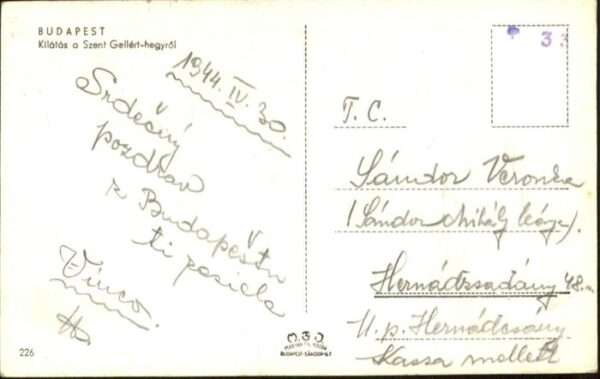 BUDAPEST
Kilátás a Szent Gellért-hegyről
1944. IV. 30.
Srdečný
pozdrav
z Budapeštu
ti posiela
Vinco.
226
33
T. C.
Sándor Veronka
(Sándor Mihály leánya).
Hernádzsadány 48.
U. p. Hernádcsány
Kassa mellett
BUDAPEST